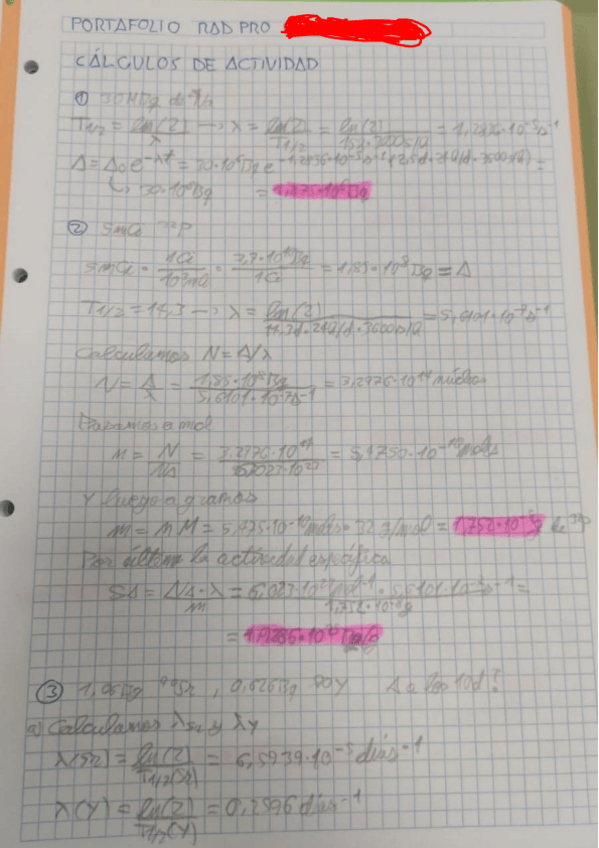 PORTAFOLIO RAD PRO
CÁLCULOS DE ACTIVIDAD
① 30 MBq de
T1/2 = ln(2)/λ → λ = ln(2)/T1/2 = ln(2)/ = 1,2836·10⁻⁵s⁻¹
A = A₀e^-λt = 30·10⁶Bq e^-1,2836·10⁻⁵s⁻¹·(2,5d·24h/d·3600s/h) =
↳ 30·10⁶Bq =
② 5mCi ³²P
5mCi · 1Ci/10³mCi · 3,7·10¹⁰Bq/1Ci = 1,85·10⁸Bq = A
T1/2 = 14,3 → λ = ln(2)/14,3d·24h/d·3600s/h = 5,6101·10⁻⁷s⁻¹
Calculamos N = A/λ
N = A/λ = 1,85·10⁸Bq/5,6101·10⁻⁷s⁻¹ = 3,2976·10¹⁴ núcleos
Pasamos a mol
n = N/NA = 3,2976·10¹⁴/6,023·10²³ = 5,4750·10⁻¹⁰ moles
Y luego a gramos
m = n M = 5,475·10⁻¹⁰ moles · 32 g/mol = 1,752·10⁻⁸g de ³²P
Por último la actividad específica
SA = NA·λ/m = 6,023·10²³mol⁻¹ · 5,6101·10⁻⁷s⁻¹/1,752·10⁻⁸g =
=
③ ⁹⁰Sr , ⁹⁰Y A a los 10d?
a) Calculamos λSr y λY
λ(Sr) = ln(2)/T1/2(Sr) = 6,5939·10⁻⁵ días⁻¹
λ(Y) = ln(2)/T1/2(Y) = 0,2596 días⁻¹